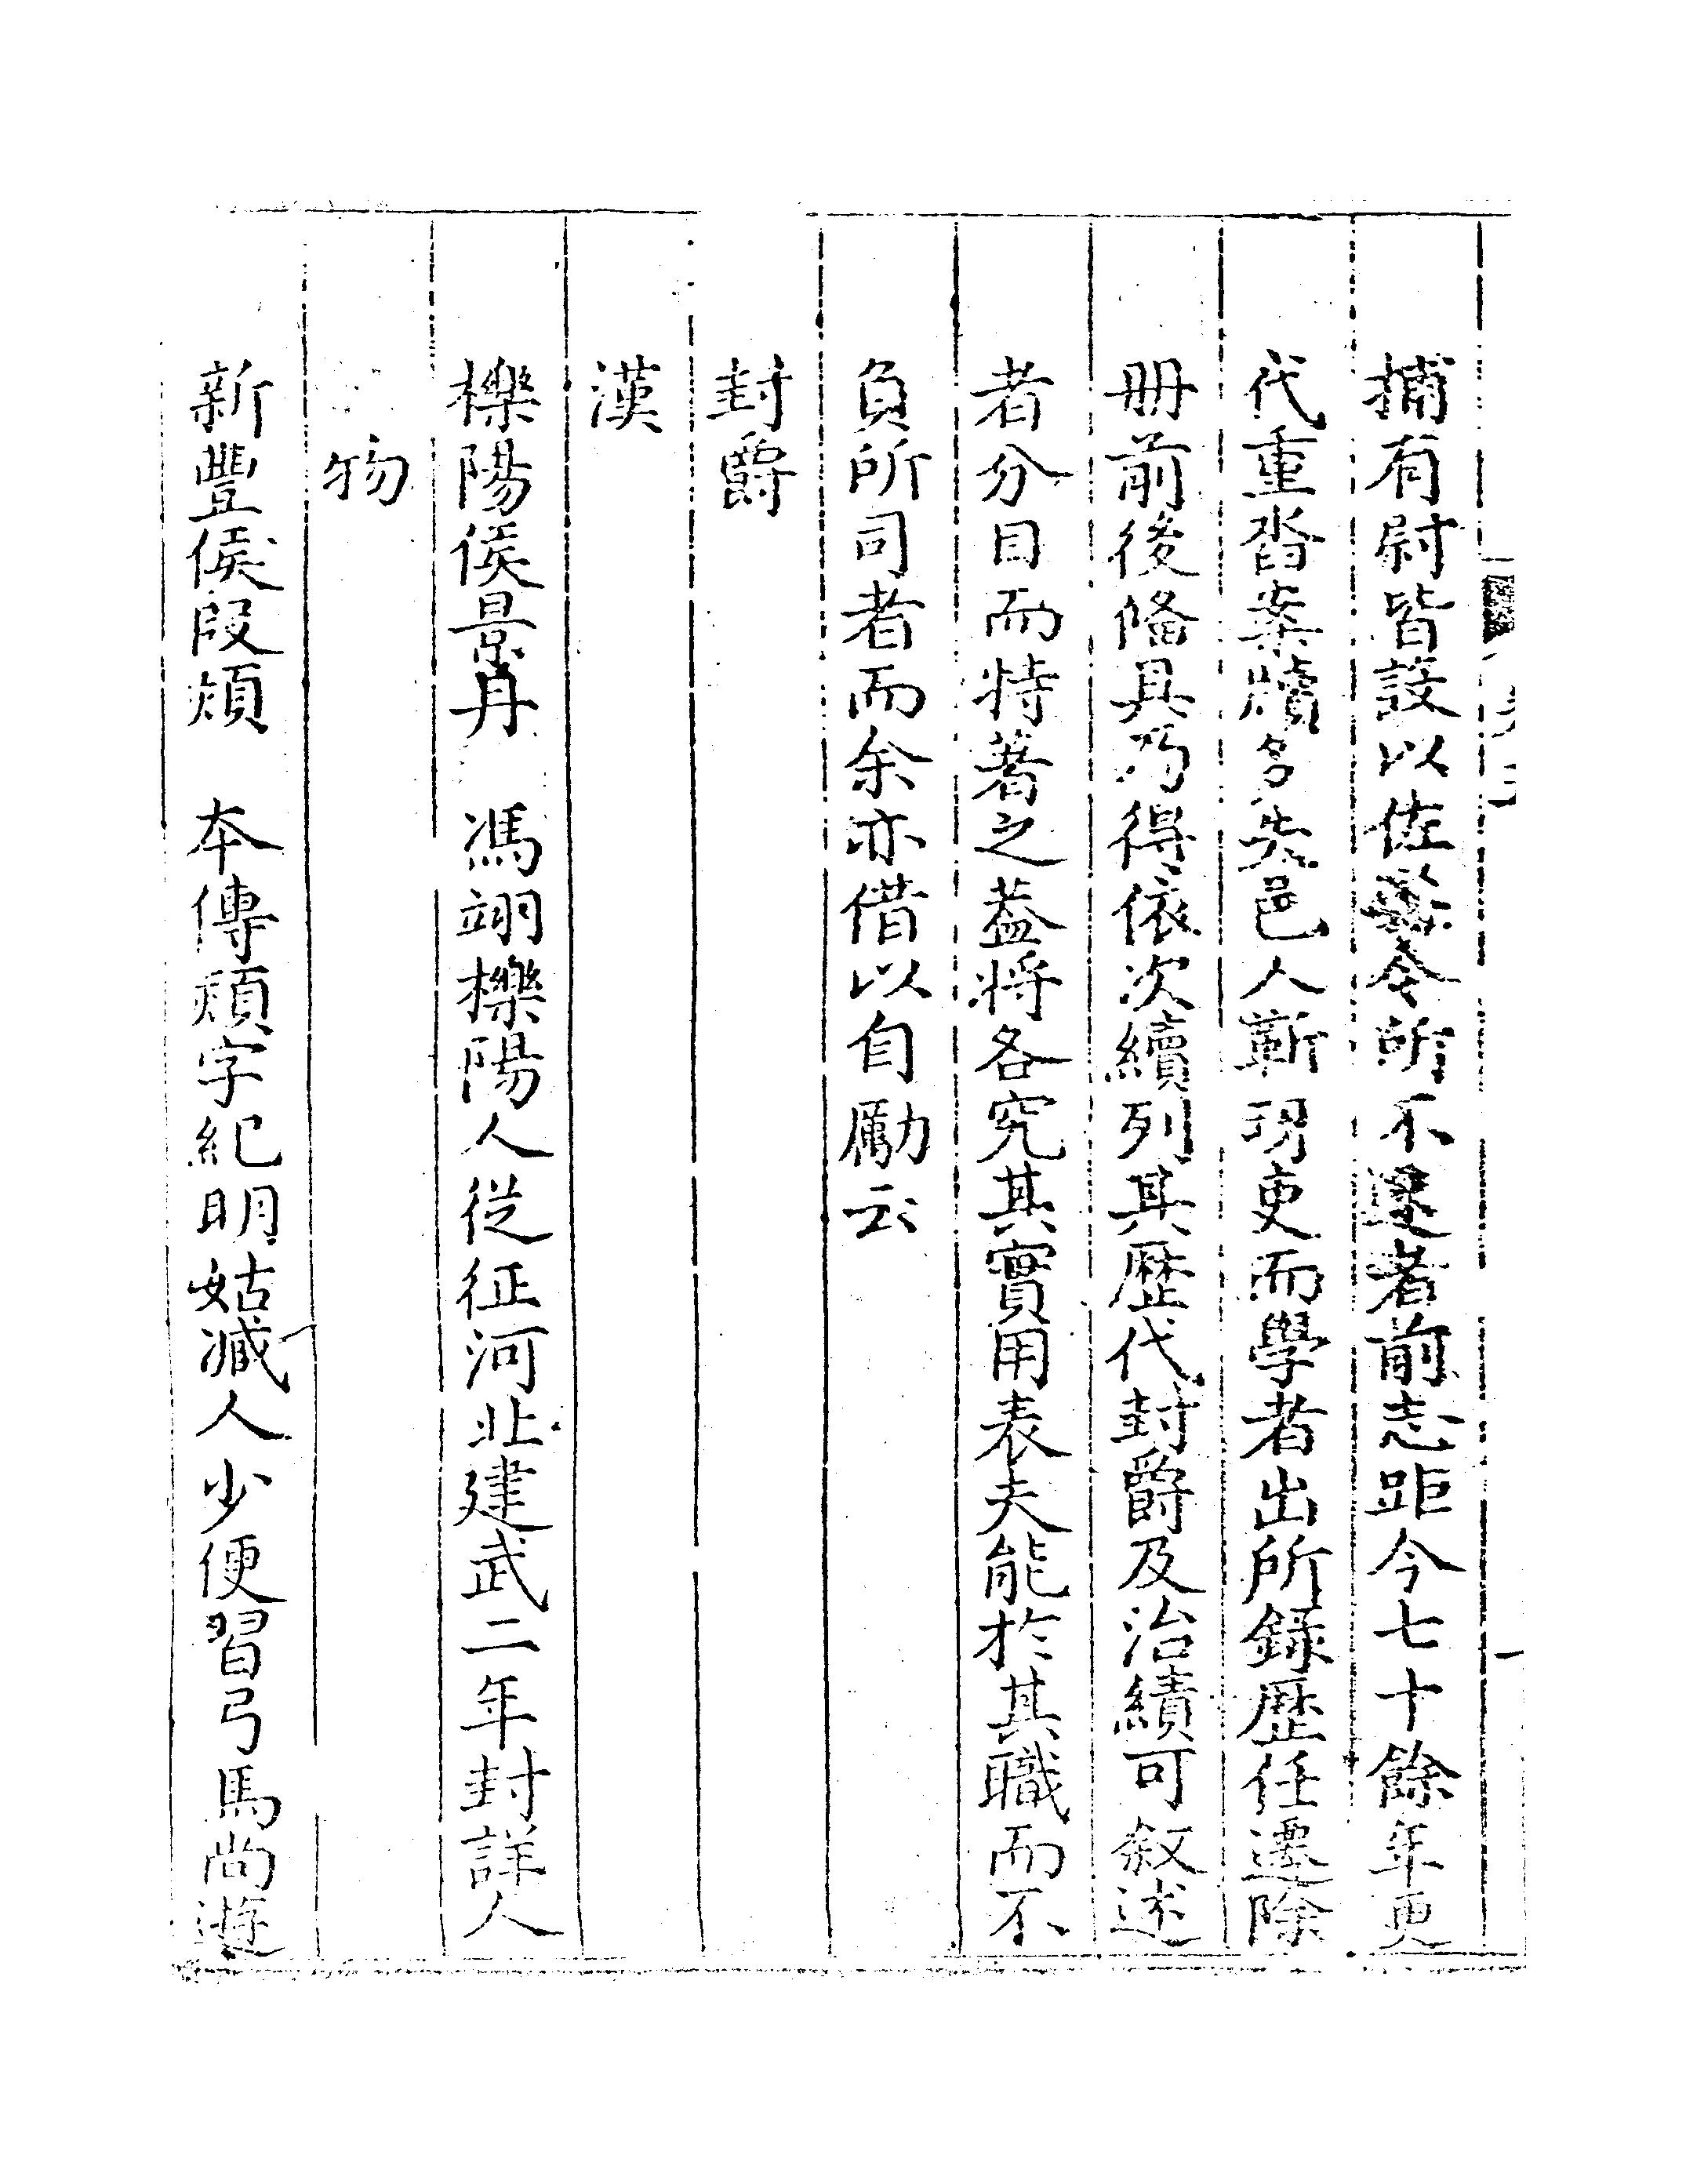 捕有尉皆設以佐縣令所不逮者前志距今七十餘年更
代重沓案牘多失邑人靳玥吏而學者出所録歷任遷除
冊前後俻具乃得依次續列其歷代封爵及治績可叙述
者分目而特著之葢將各究其實用表夫能於其職而不
負所司者而余亦借以自勵云
封爵
漢
櫟陽侯景丹　馮翊櫟陽人從征河北建武二年封詳人
物
新豐侯段熲　本傳熲字紀明姑臧人少便習弓馬尚遊